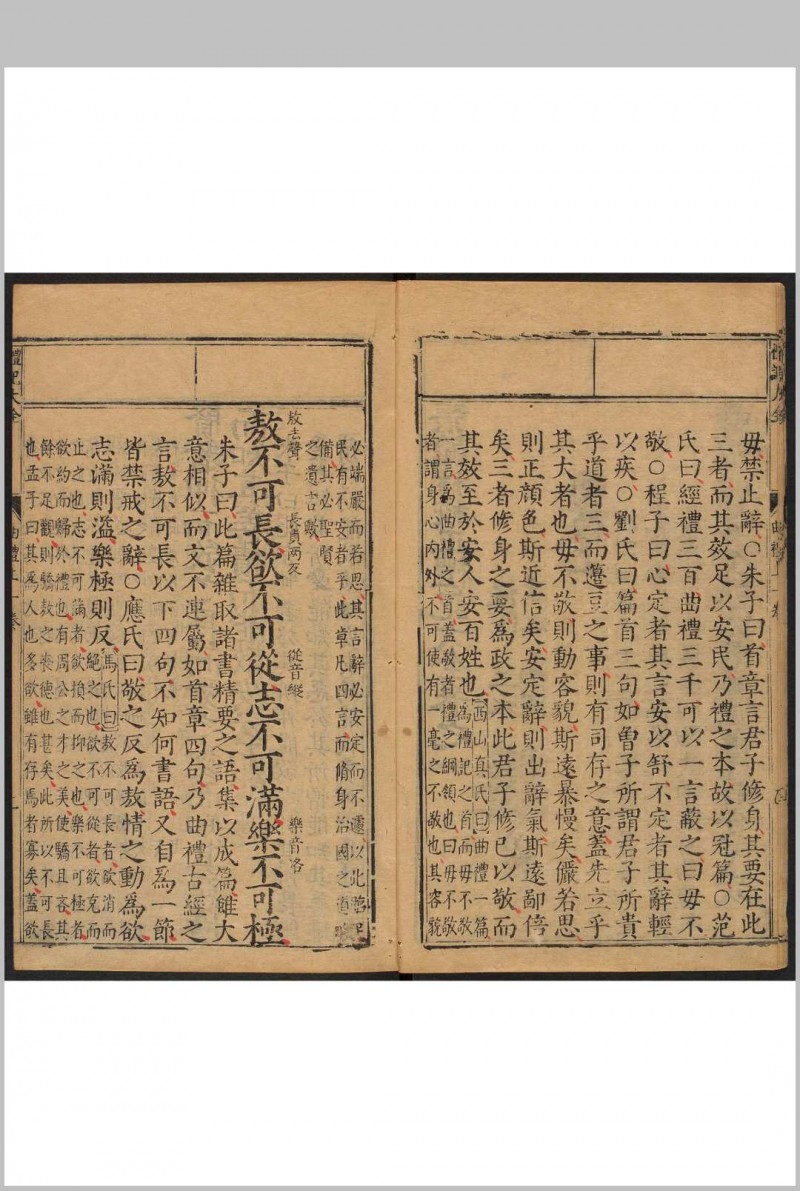 毋禁止辭○朱子曰首章言君子修身其要在此
三者而其效足以安民乃禮之本故以冠篇○范
氏曰經禮三百曲禮三千可以一言蔽之曰毋不
敬○程子曰心定者其言安以舒不定者其辭輕
以疾○劉氏曰篇首三句如曾子所謂君子所貴
乎道者三而籩豆之事則有司存之意蓋先立乎
其大者也毋不敬則動容貌斯遠暴慢矣儼若思
則正顔色斯近信矣安定辭則出辭氣斯遠鄙倍
矣三者修身之要爲政之本此君子修已以敬而
其效至於安人安百姓也
西山真氏曰曲禮一篇
爲禮記之首而毋不敬
一言爲曲禮之首蓋敬者禮之綱領也曰毋不敬
者謂身心內外不可使有一毫之不敬也其容貌
必端嚴而若思其言辭必安定而不遽以此臨
民有不安者乎此章凡四言而脩身治國之道略
備其必聖賢
之遺言歟
敖去聲
長貞兩反
從音縱
樂音洛
敖不可長欲不可從志不可滿樂不可極
朱子曰此篇雜取諸書精要之語集以成篇雖大
意相似而文不連屬如首章四句乃曲禮古經之
言敖不可長以下四句不知何書語又自爲一節
皆禁戒之辭○應氏曰敬之反爲敖情之動爲欲
志滿則溢樂極則反
馬氏曰敖不可長者欲消而
絕之也欲不可從者欲克而
止之也志不可滿者欲損而抑之也樂不可極者
欲約而歸於禮也有周公之才之美使驕且吝其
餘不足觀則驕敖之喪德也甚矣此所以不可長
也孟子曰其爲人也多欲雖有存焉者寡矣蓋欲
禮記大全
曲禮上